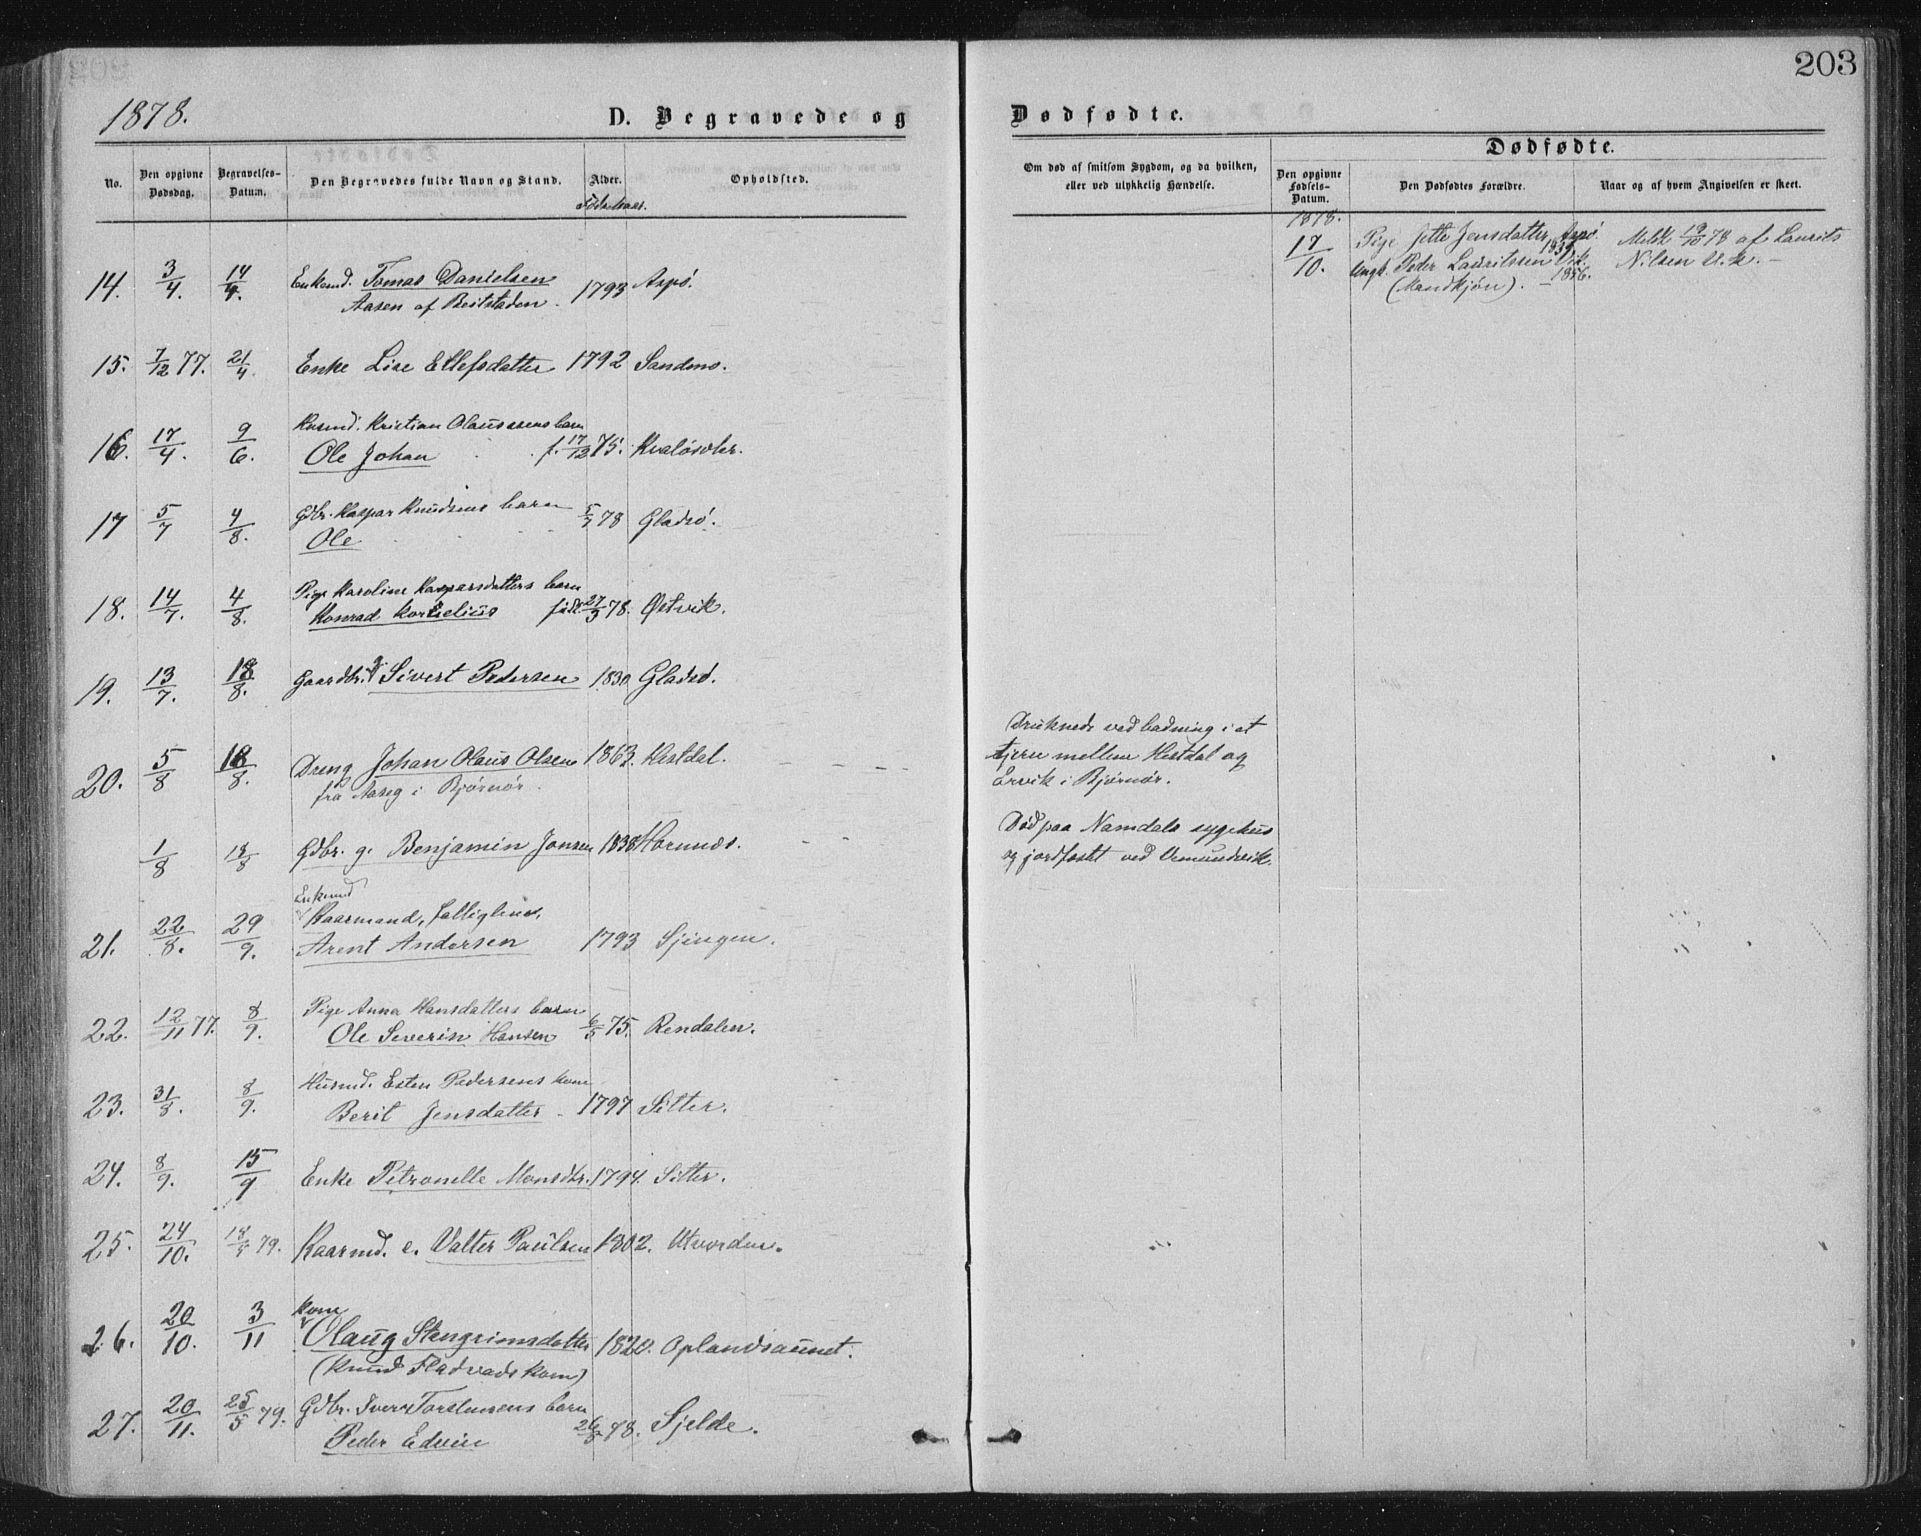 203
1878.
D. Begravede og Dødfødte.
No.
Den opgivne Dødsdag.
Begravelses-Datum.
Den Begravedes fulde Navn og Stand.
Alder.
Fødselsaar.
Opholdsted.
Om død af smitsom Sygdom, og da hvilken,
eller ved ulykkelig Hændelse.
Dødfødte.
Den opgivne Fødsels-Datum.
Den Dødfødtes Forældre.
Naar og af hvem Angivelsen er skeet.
14. 3/4. 14/4. Enkemd. Tomas Danielsen 1793 Aspø.
Aasen af Beitstaden.
15. 7/12 77. 21/4. Enke Lise Ellefsdatter 1792 Sandmo.
16. 17/4. 9/6. Husmd. Kristian Olaussens barn
Ole Johan f. 17/12 75. Kvaløsæter.
17 5/7 4/8. Gdbr. Kaspar Knudsens barn 5/7 78 Gladsø.
Ole
18. 14/7. 4/8. Pige Karoline Kasparsdatters barn
Konrad Kornelius født 27/3 78. Østvik.
19. 13/7. 18/8. Gaardbr. g. Sivert Pedersen 1830. Gladsø.
20. 5/8 18/8. Dreng Johan Olaus Olsen 1863. Hestdal.
fra Aaseg i Bjørnør.
Druknede ved badning i et
tjern mellem Hestdal og
Ervik i Bjørnør.
1/8 18/8 Gdbr. g. Benjamin Jonsen 1838 Hornnæs.
Død paa Namdals sygehus
og jordfæstet ved Vemundvik.
Enkemd
21. 22/8. 29/9. Kaarmand, fattiglem,
Arent Andersen 1793 Sjingen.
22. 12/11 77. 8/9. Pige Anna Hansdatters barn
Ole Severin Hansen 6/5 75. Rendalen.
23. 31/8. 8/9. Husmd. Esten Pedersens kone
Berit Jensdatter 1797 Sitter.
24. 8/9. 15/9 Enke Petronelle Monsdtr. 1794. Sitter.
25. 24/10. 18/5 79. Kaarmd. e. Valter Paulsen 1802. Utvorden.
26. 20/10. 3/11 kone
Olaug Stengrimsdatter 1820. Oplandsaunet.
(Knud Fladvads kone)
27. 20/11. 25/5 79. Gdbr. Iver Torstensens barn
Peder Edvin 26/8 78. Sjelde.
1878.
17/10. Pige Jette Jensdatter, Aspø. 1839
Ungk. Peder Lauritssen Vik.
(Mandkjøn). - 1856.
Meldt 19/10 78 af Laurits
Nilsen Vik. -